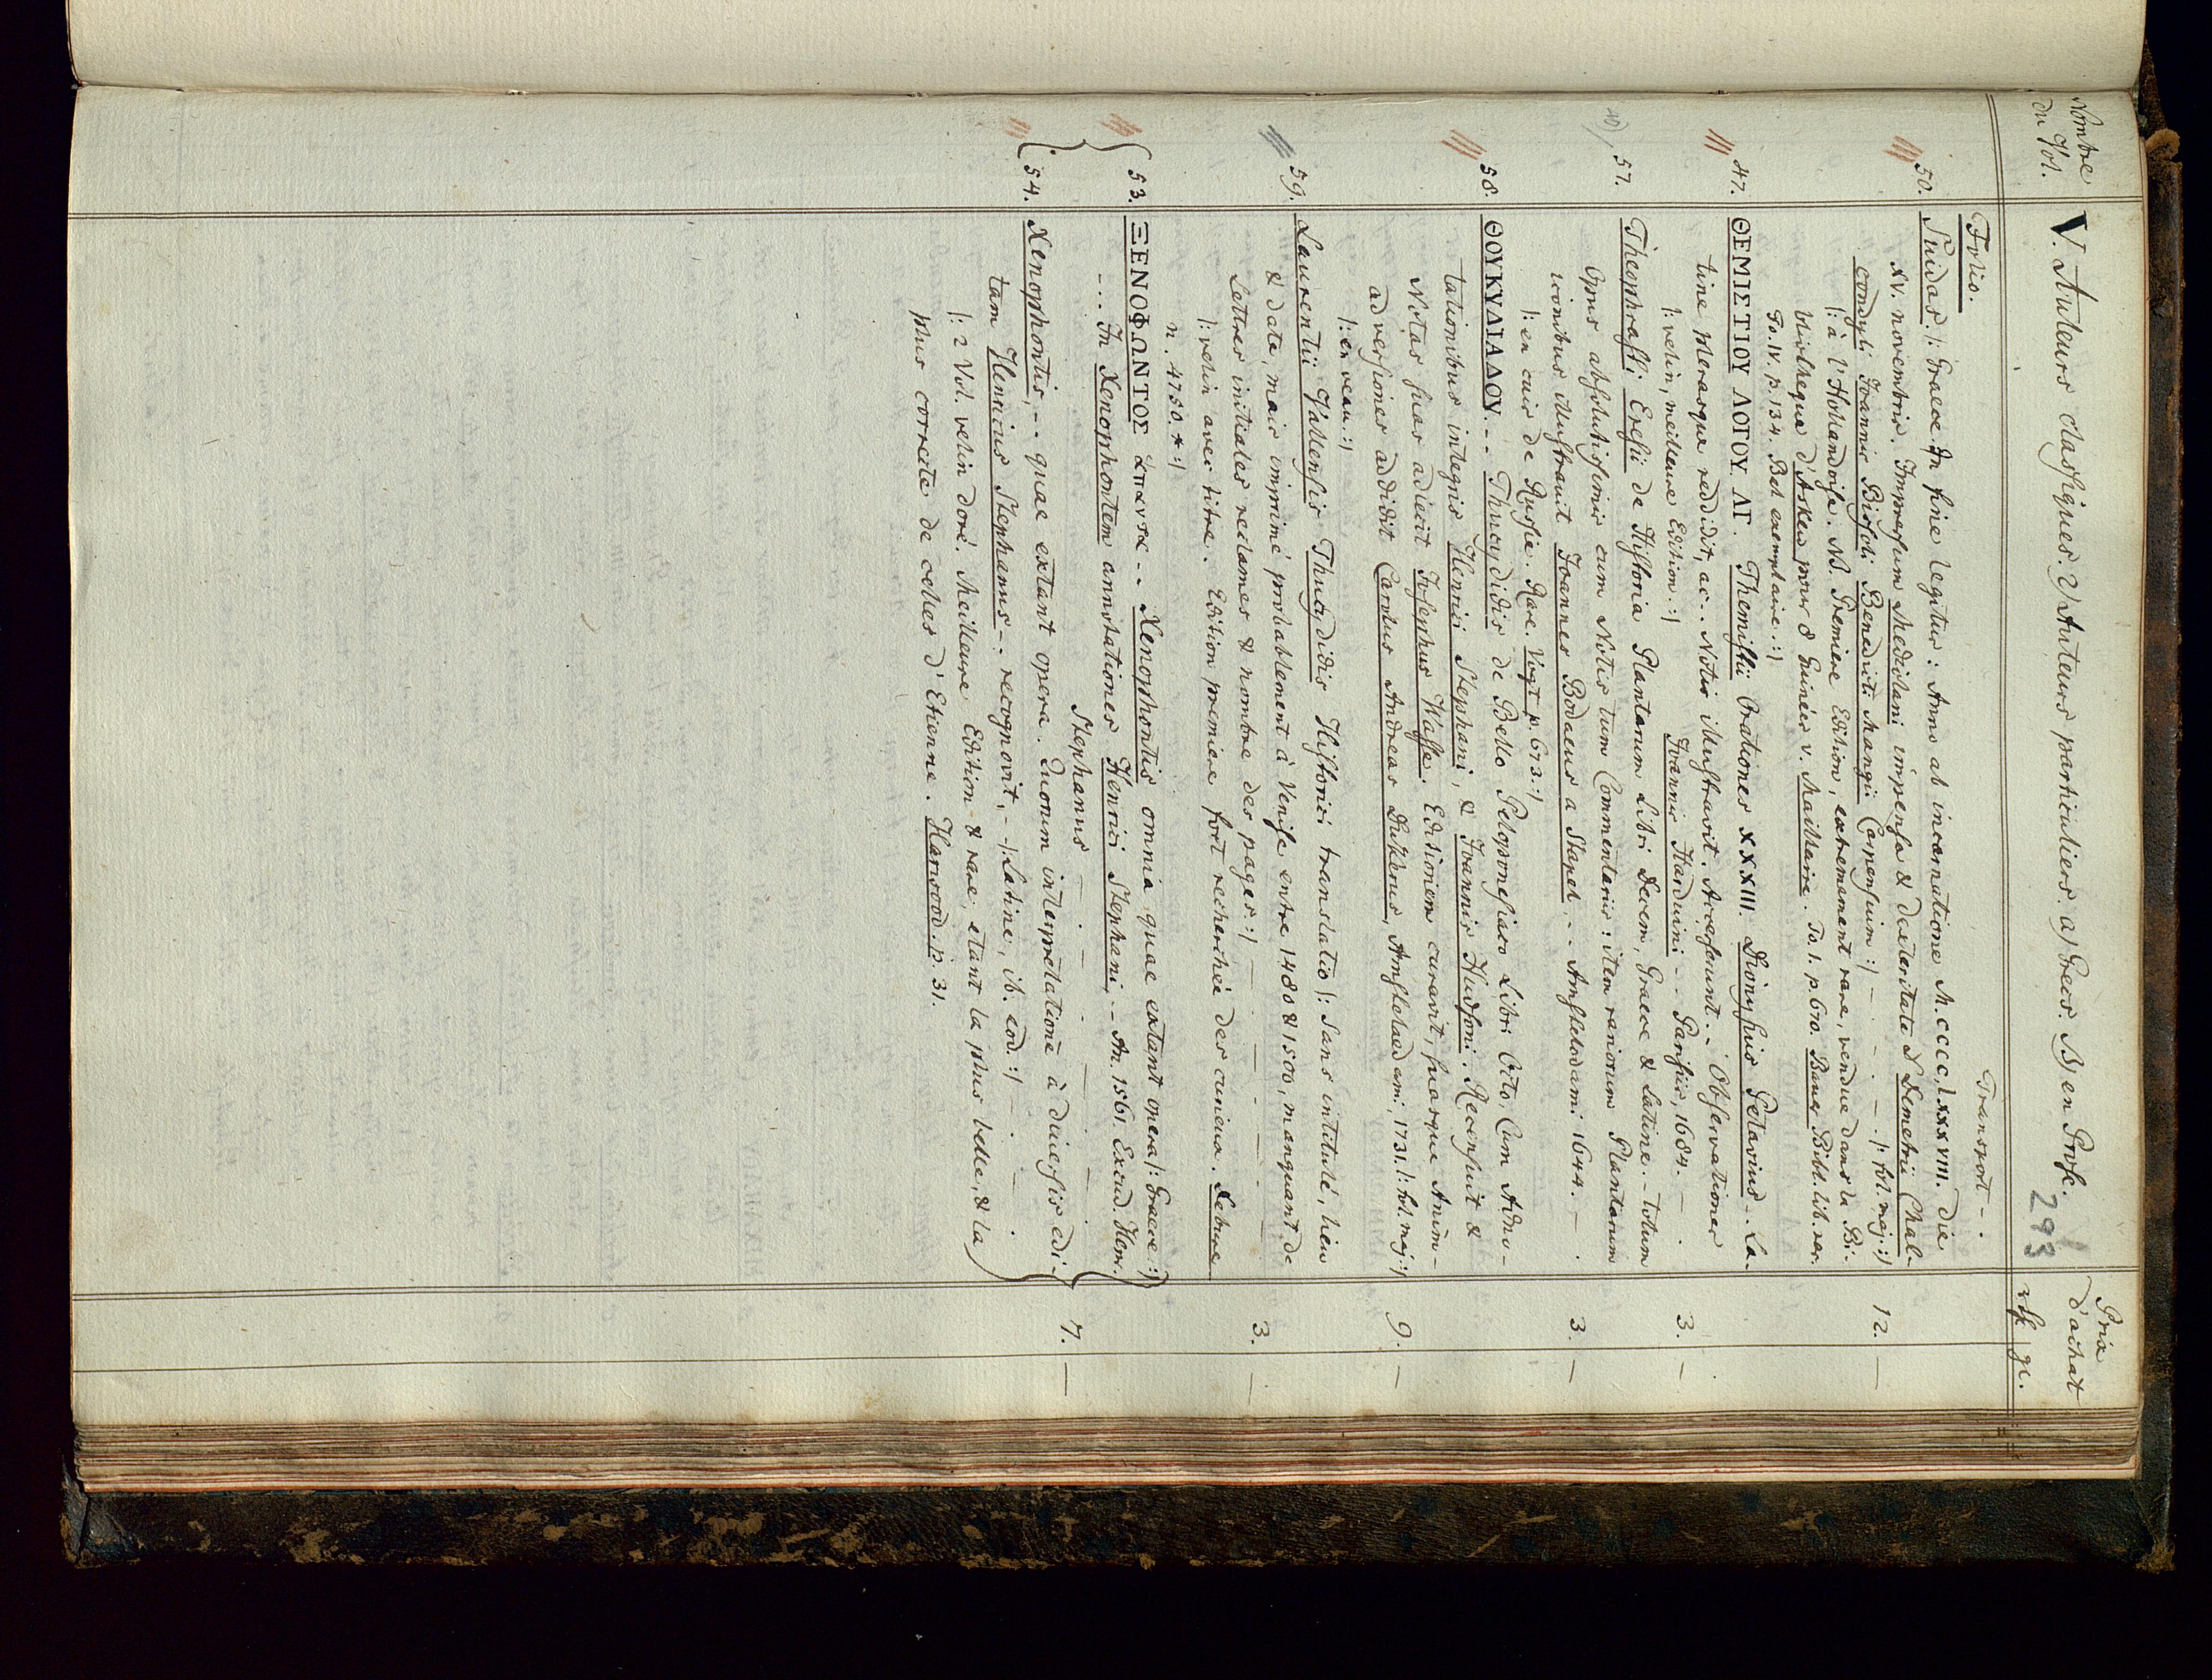 Nombre du Vol.
V. Auteurs classiques. 2) Auteurs particuliers. a) Grecs. B) en Prose.
293
Prix d'achat
rh gr.
Folio.
Transport - .
50. Suidas. /: Graece. In fine legitur: Anno ab incarnatione M.CCCC.LXXXVIIII. die
XV. novembris. Impressum Mediolani impensa & dexteritate D Demetrii Chal-
condyli Joannis Bissoli Benedicti Mangii Carpensium :/ - . - . /: fol. maj :/ 12. —
/: à l'Hollandoise. NB. Premiere Edition, extremement rare, vendue dans la Bi-
bliotheque d'Askew pour 8 Guinées v. Maittaire. To. 1. p. 670 Bauer Bibl. lib. rar.
To. IV. p. 134. Bel exemplaire. :/
47. ΘΕΜΙΣΤΙΟΥ ΛΟΓΟΥ ΛΓ. Themistii Orationes XXXIII. Dionysius Petavius .. La-
tine plerasque reddidit, ac .. Notis illustravit. Accesserunt .. Observationes
/: velin, meilleure Edition. :/ Joannis Harduini .. Parisiis, 1684. — . 3. —
40)
57. Theophrasti Eresii de Historia Plantarum Libri Decem, Graece & Latine. - totum
Opus absolutissimis cum Notis tum Commentariis: item rariorum Plantarum
iconibus illustravit Joannes Bodaeus a Stapel ... Amstelodami 1644. — . 3. —
/: en cuir de Russie. Rare. Vogt p. 673. :/
58. ΘΟΥΚΥΔΙΔΔΟΥ .. Thucydidis de Bello Peloponesiaco Libri Octo, Cum Adno-
tationibus integris Henrici Stephani, & Joannis Hudsoni. Recensuit &
Notas suas adiecit Josephus Wasse. Editionem curavit, suasque Anim-
adversiones addidit Carolus Andreas Dukerus, Amstelaedami, 1731. /: fol. maj :/ 9. —
/: en veau. :/
59. Laurentii Vallensis Thucydidis Historici translatio /: Sans intitulé, lieu
& date, mais imprimé probablement à Venise entre 1480 & 1500, manquant de
Lettres initiales reclames & nombre des pages. :/ — . — . — . — 3. —
/: velin avec titre. Edition premiere fort recherchée des curieux. Debure
n. 4750. * :/
53. ΞΕΝΟΦΩΝΤΟΣ ἁπαντα .. Xenophontis omnia quae extant opera /: Graece :/
... In Xenophontem annotationes Henrici Stephani, .. An. 1561. Excud. Henr.
Stephanus — . — . — . — . 7. —
54. Xenophontis, .. quae extant opera. Quorum interpretatione à diversis edi-
tam Henricus Stephanus .. recognovit, .. /: Latine, ib. eod. :/ — . — .
/: 2 Vol. velin doré. Meilleure Edition & rare, etant la plus belle, & la
plus correcte de celles d'Etienne. Harwood. p. 31.